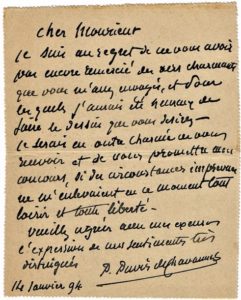 Cher Monsieur
Je suis au regret de ne vous avoir
pas encore remercié des vers charmants
que vous m'avez envoyés, et pour
lesquels j'aurais été heureux de
faire le dessin que vous désirez.
Je serais en outre charmé de vous
revoir et de vous promettre mon
concours, si des circonstances imprévues
ne m'enlevaient en ce moment tout
loisir et toute liberté.
Veuillez agréer avec mes excuses
l'expression de mes sentiments très
distingués
P. Puvis de Chavannes
14 Janvier 94